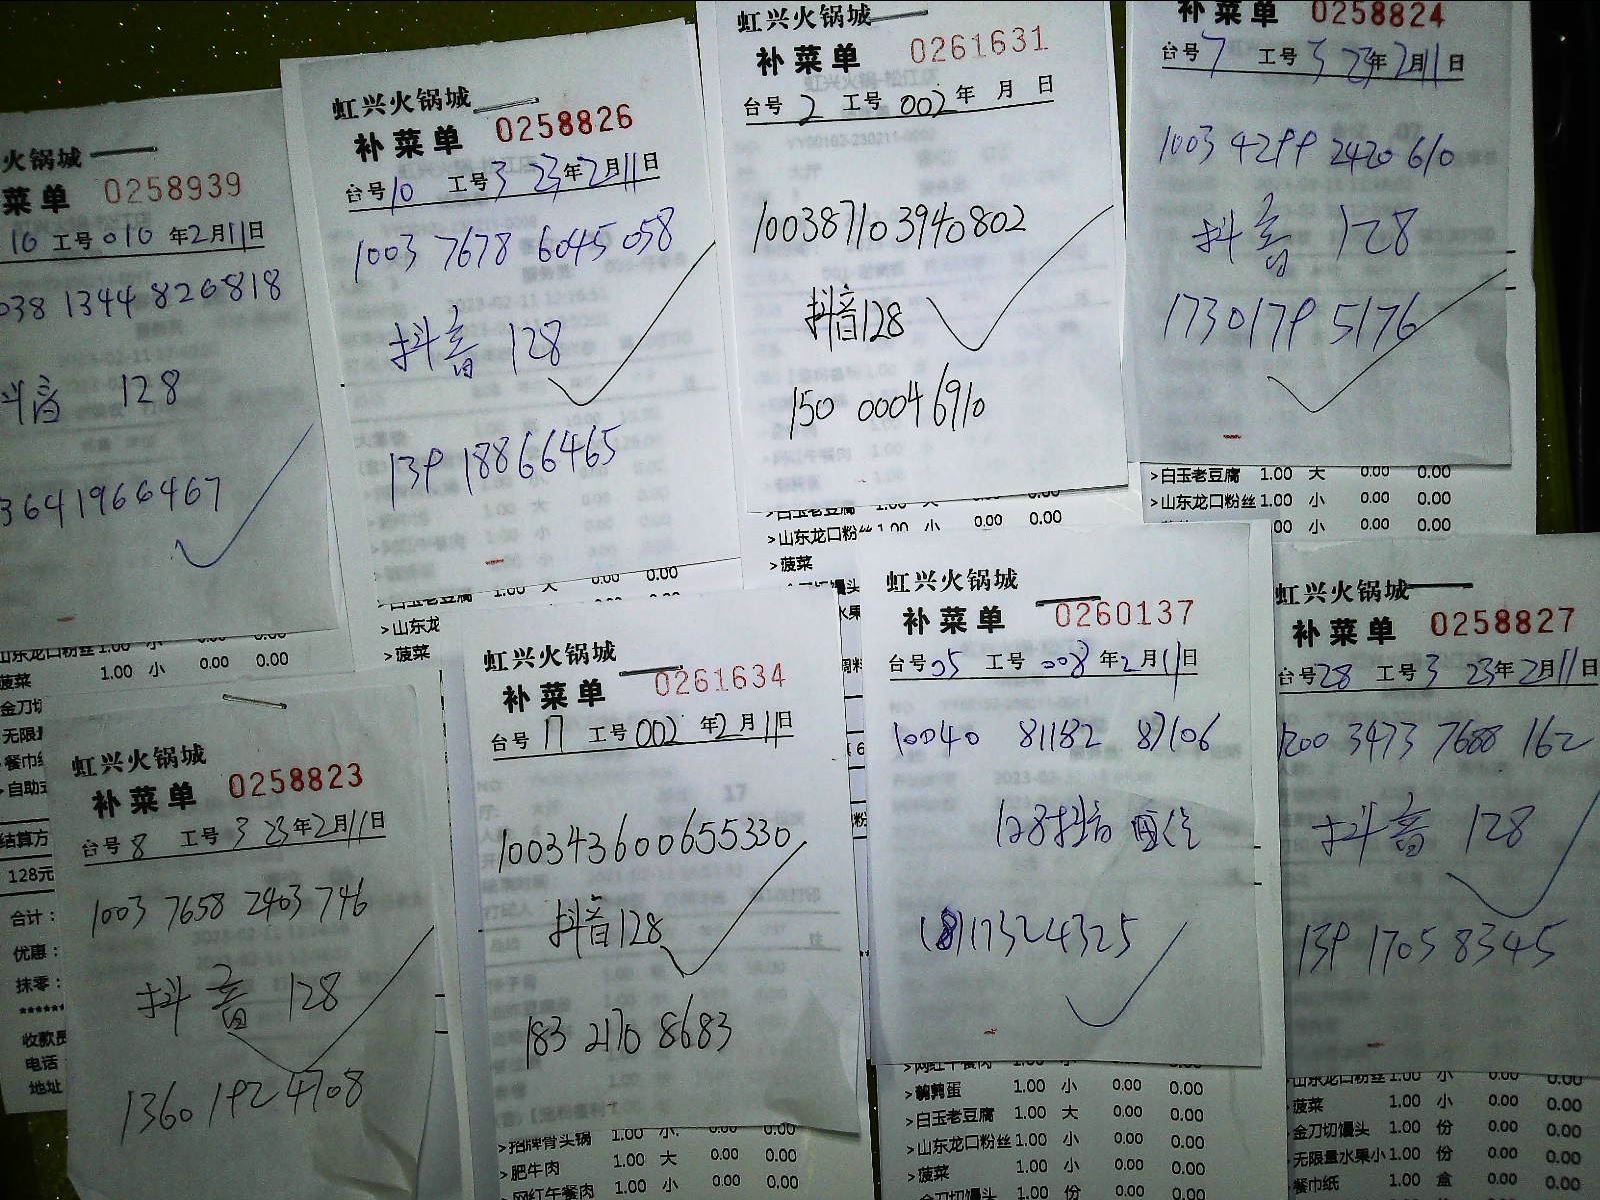 火锅城
菜单 0258939
10 工号010 年2月11日
038 1344 826818
抖音 128
3641966467
虹兴火锅城
补菜单 0258826
台号10 工号3 23年2月11日
1003 7678 6045 058
抖音 128
139 18866465
虹兴火锅城
补菜单 0261631
台号2 工号002年 月 日
10038710 3940802
抖音128
150 00046910
补菜单 0258824
台号7 工号3 23年2月11日
1003 4299 2420 610
抖音 128
1730179 5176
>白玉老豆腐 1.00 大 0.00 0.00
>山东龙口粉丝 1.00 小 0.00 0.00
1.00 小 0.00 0.00
>白玉老豆腐
>山东龙口粉丝 1.00 小 0.00 0.00
>菠菜
>白玉老豆腐 1.00 大 0.00 0.00
>山东龙
>菠菜
山东龙口粉丝 1.00 小 0.00 0.00
菠菜 1.00 小 0.00 0.00
金刀切
无限量
餐巾纸
自助
结算方
128元
合计：
优惠：
抹零：
******
收款员
电话
地址
虹兴火锅城
补菜单 0258823
台号8 工号3 23年2月11日
1003 7658 2403 746
抖音 128
1360 192 4708
虹兴火锅城
补菜单 0261634
台号17 工号002 年2月11日
100343600655330
抖音128
183 2170 8683
>招牌骨头锅 1.00 小 0.00 0.00
>肥牛肉 1.00 大 0.00 0.00
>网红午餐肉 1.00 小 0.00 0.00
虹兴火锅城
补菜单 0260137
台号05 工号008 年2月11日
10040 81182 87106
128抖音 微信
18117324325
>网红午餐肉 1.00 小 0.00 0.00
>鹌鹑蛋 1.00 小 0.00 0.00
>白玉老豆腐 1.00 大 0.00 0.00
>山东龙口粉丝 1.00 小 0.00 0.00
>菠菜 1.00 小 0.00 0.00
>金刀切馒头 1.00 份 0.00 0.00
虹兴火锅城
补菜单 0258827
台号28 工号3 23年2月11日
1003 3473 7688 162
抖音 128
139 1705 8345
山东龙口粉丝 1.00 小 0.00 0.00
>菠菜 1.00 小 0.00 0.00
>金刀切馒头 1.00 份 0.00 0.00
>无限量水果小 1.00 份 0.00 0.00
>餐巾纸 1.00 盒 0.00 0.00